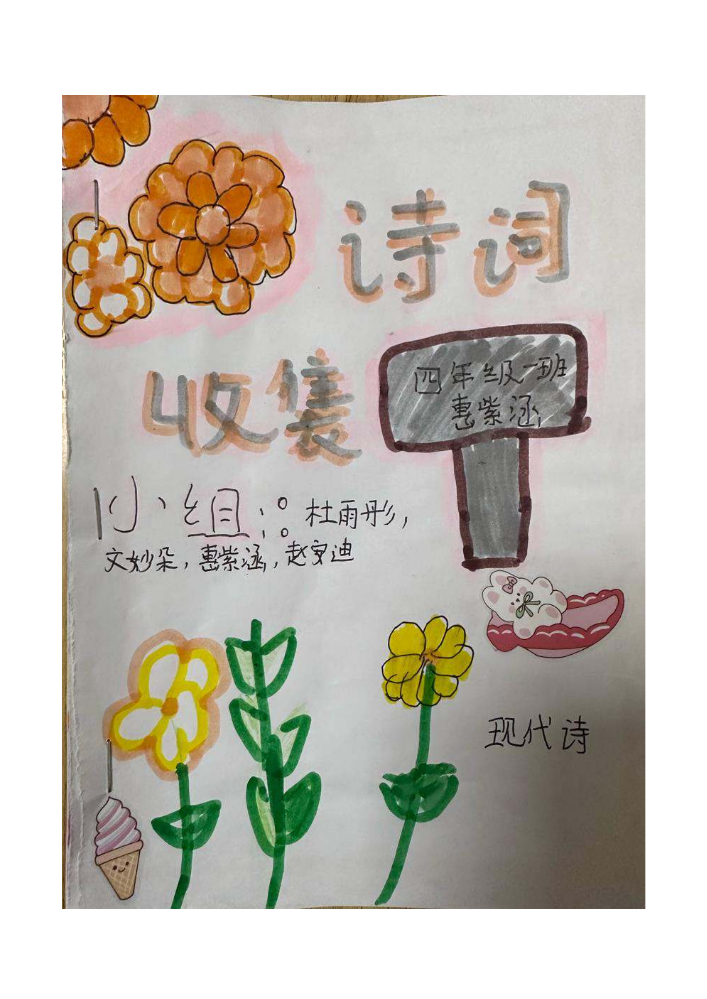 诗词
收集
四年级一班
惠紫涵
小组：杜雨彤，
文妙朵，惠紫涵，赵安迪
现代诗